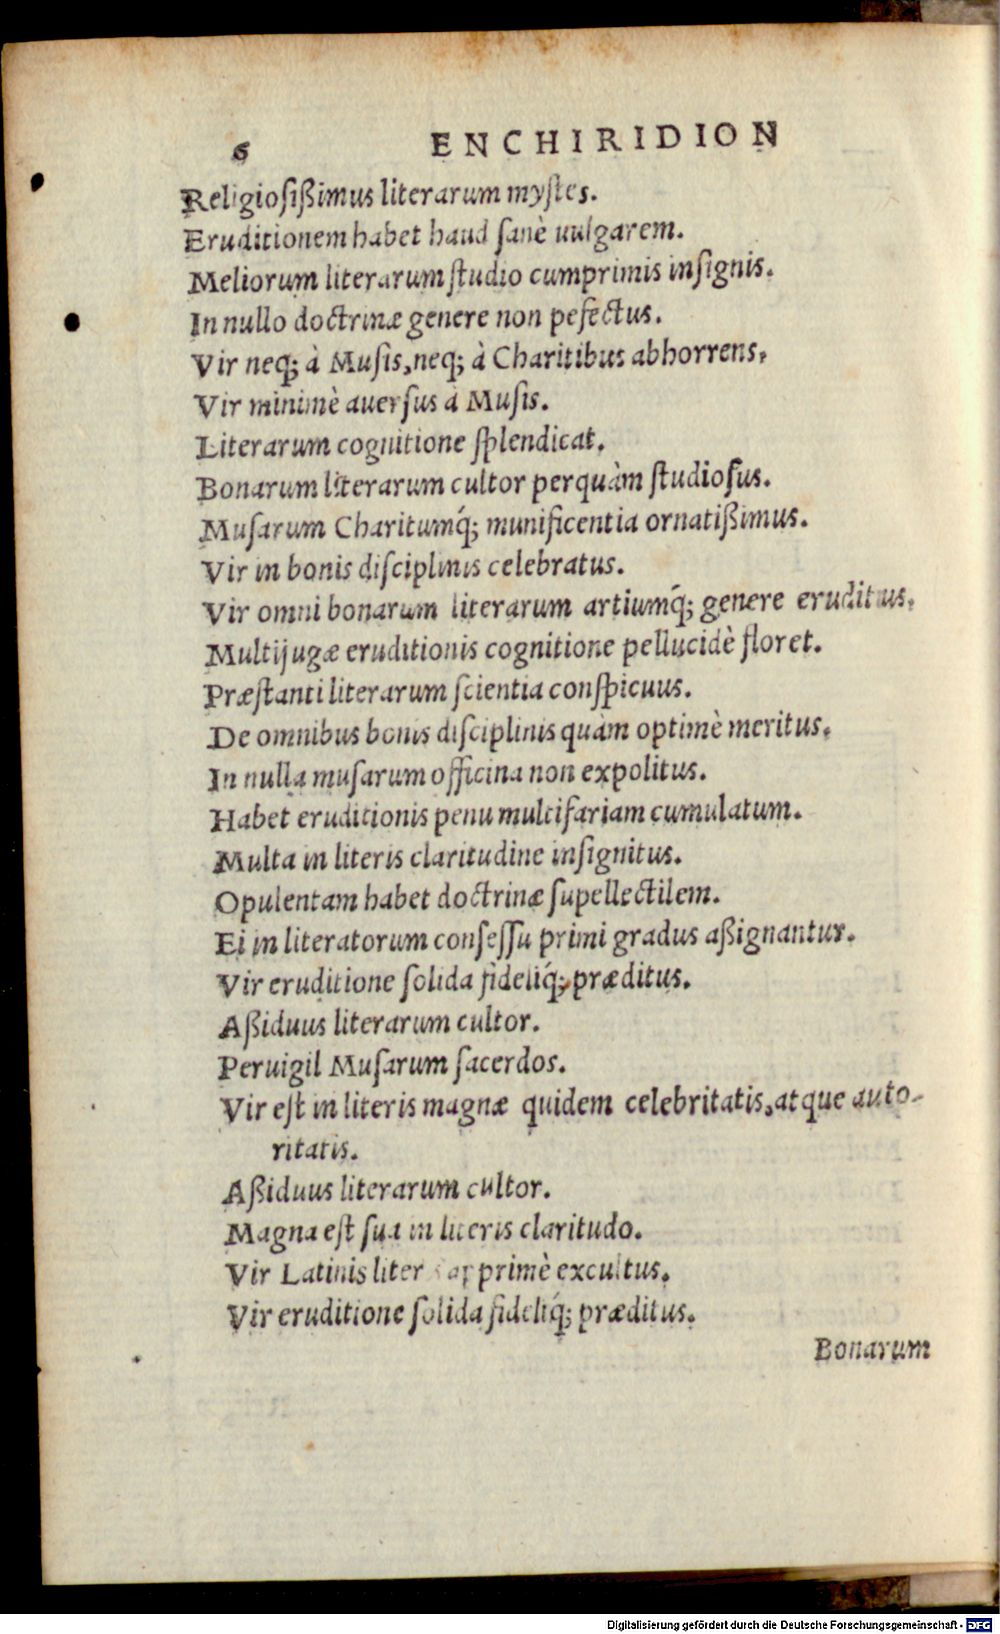 6 ENCHIRIDION
Religiosißimus literarum mystes.
Eruditionem habet haud sanè uulgarem.
Meliorum literarum studio cumprimis insignis.
In nullo doctrinæ genere non pefectus.
Vir neq; à Musis, neq; à Charitibus abhorrens.
Vir minimè auersus à Musis.
Literarum cognitione splendicat.
Bonarum literarum cultor perquàm studiosus.
Musarum Charitumq́; munificentia ornatißimus.
Vir in bonis disciplinis celebratus.
Vir omni bonarum literarum artiumq́; genere eruditus.
Multijugæ eruditionis cognitione pellucidè floret.
Præstanti literarum scientia conspicuus.
De omnibus bonis disciplinis quàm optimè meritus.
In nulla musarum officina non expolitus.
Habet eruditionis penu multifariam cumulatum.
Multa in literis claritudine insignitus.
Opulentam habet doctrinæ supellectilem.
Ei in literatorum consessu primi gradus aßignantur.
Vir eruditione solida fideliq́; præditus.
Aßiduus literarum cultor.
Peruigil Musarum sacerdos.
Vir est in literis magnæ quidem celebritatis, atque auto-
ritatis.
Aßiduus literarum cultor.
Magna est sua in literis claritudo.
Vir Latinis liter apprimè excultus.
Vir eruditione solida fideliq́; præditus.
Bonarum
Digitalisierung gefördert durch die Deutsche Forschungsgemeinschaft - DFG